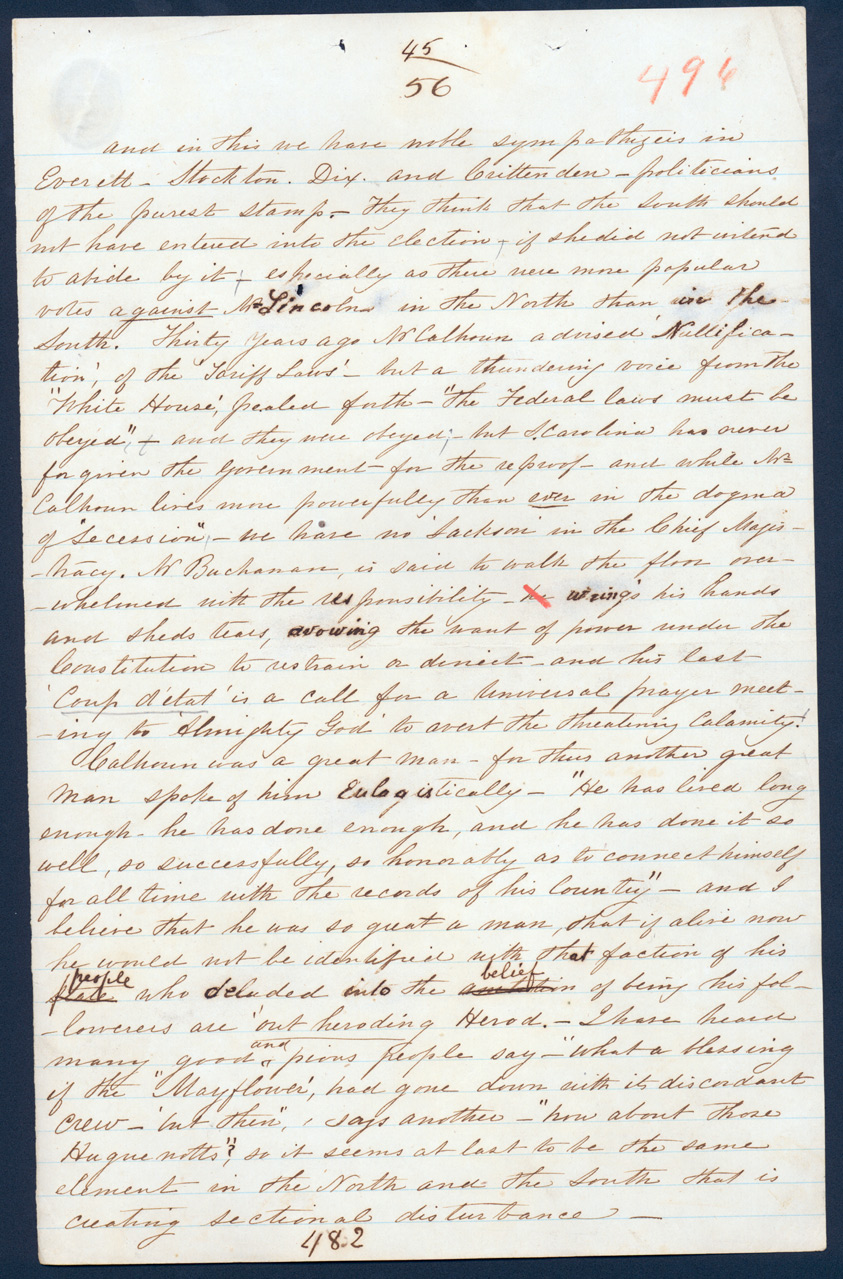 45
56
496
and in this we have noble sympathizers in
Everett - Stockton. Dix. and Crittenden - politicians
of the purest stamp. - They think that the South should
not have entered into the election, if she did not intend
to abide by it - especially as there were more popular
votes against Mr Lincoln in the North than in the
South. Thirty years ago Mr Calhoun advised 'Nullifica-
tion', of the 'Tariff Laws' - but a thundering voice from the
"White House', pealed forth - "the Federal laws must be
obeyed", - and they were obeyed; - but S. Carolina has never
forgiven the Government for the reproof - and while Mr
Calhoun lives more powerfully than ever in the dogma
of "Secession" - we have no 'Jackson' in the Chief Magis-
-tracy. Mr Buchanan, is said to walk the floor over-
-whelmed with the responsibility - he wrings his hands
and sheds tears, avowing the want of power under the
Constitution to restrain or direct - and his last
'Coup d'etat' is a call for a Universal prayer meet-
-ing to 'Almighty God' to avert the threatening Calamity!
Calhoun was a great man - for thus another great
man spoke of him Eulogistically - "He has lived long
enough - he has done enough, and he has done it so
well, so successfully, so honorably as to connect himself
for all time with the records of his Country" - and I
believe that he was so great a man, that if alive now
he would not be identified with that faction of his
people
state who deluded into the belief of being his fol-
-lowerers are 'out heroding Herod. - I have heard
many good and pious people say - "what a blessing
if the "Mayflower', had gone down with its discordant
crew - 'but then", says another - "how about those
Huguenotts"? so it seems at last to be the same
element in the North and the South that is
creating sectional disturbance -
482